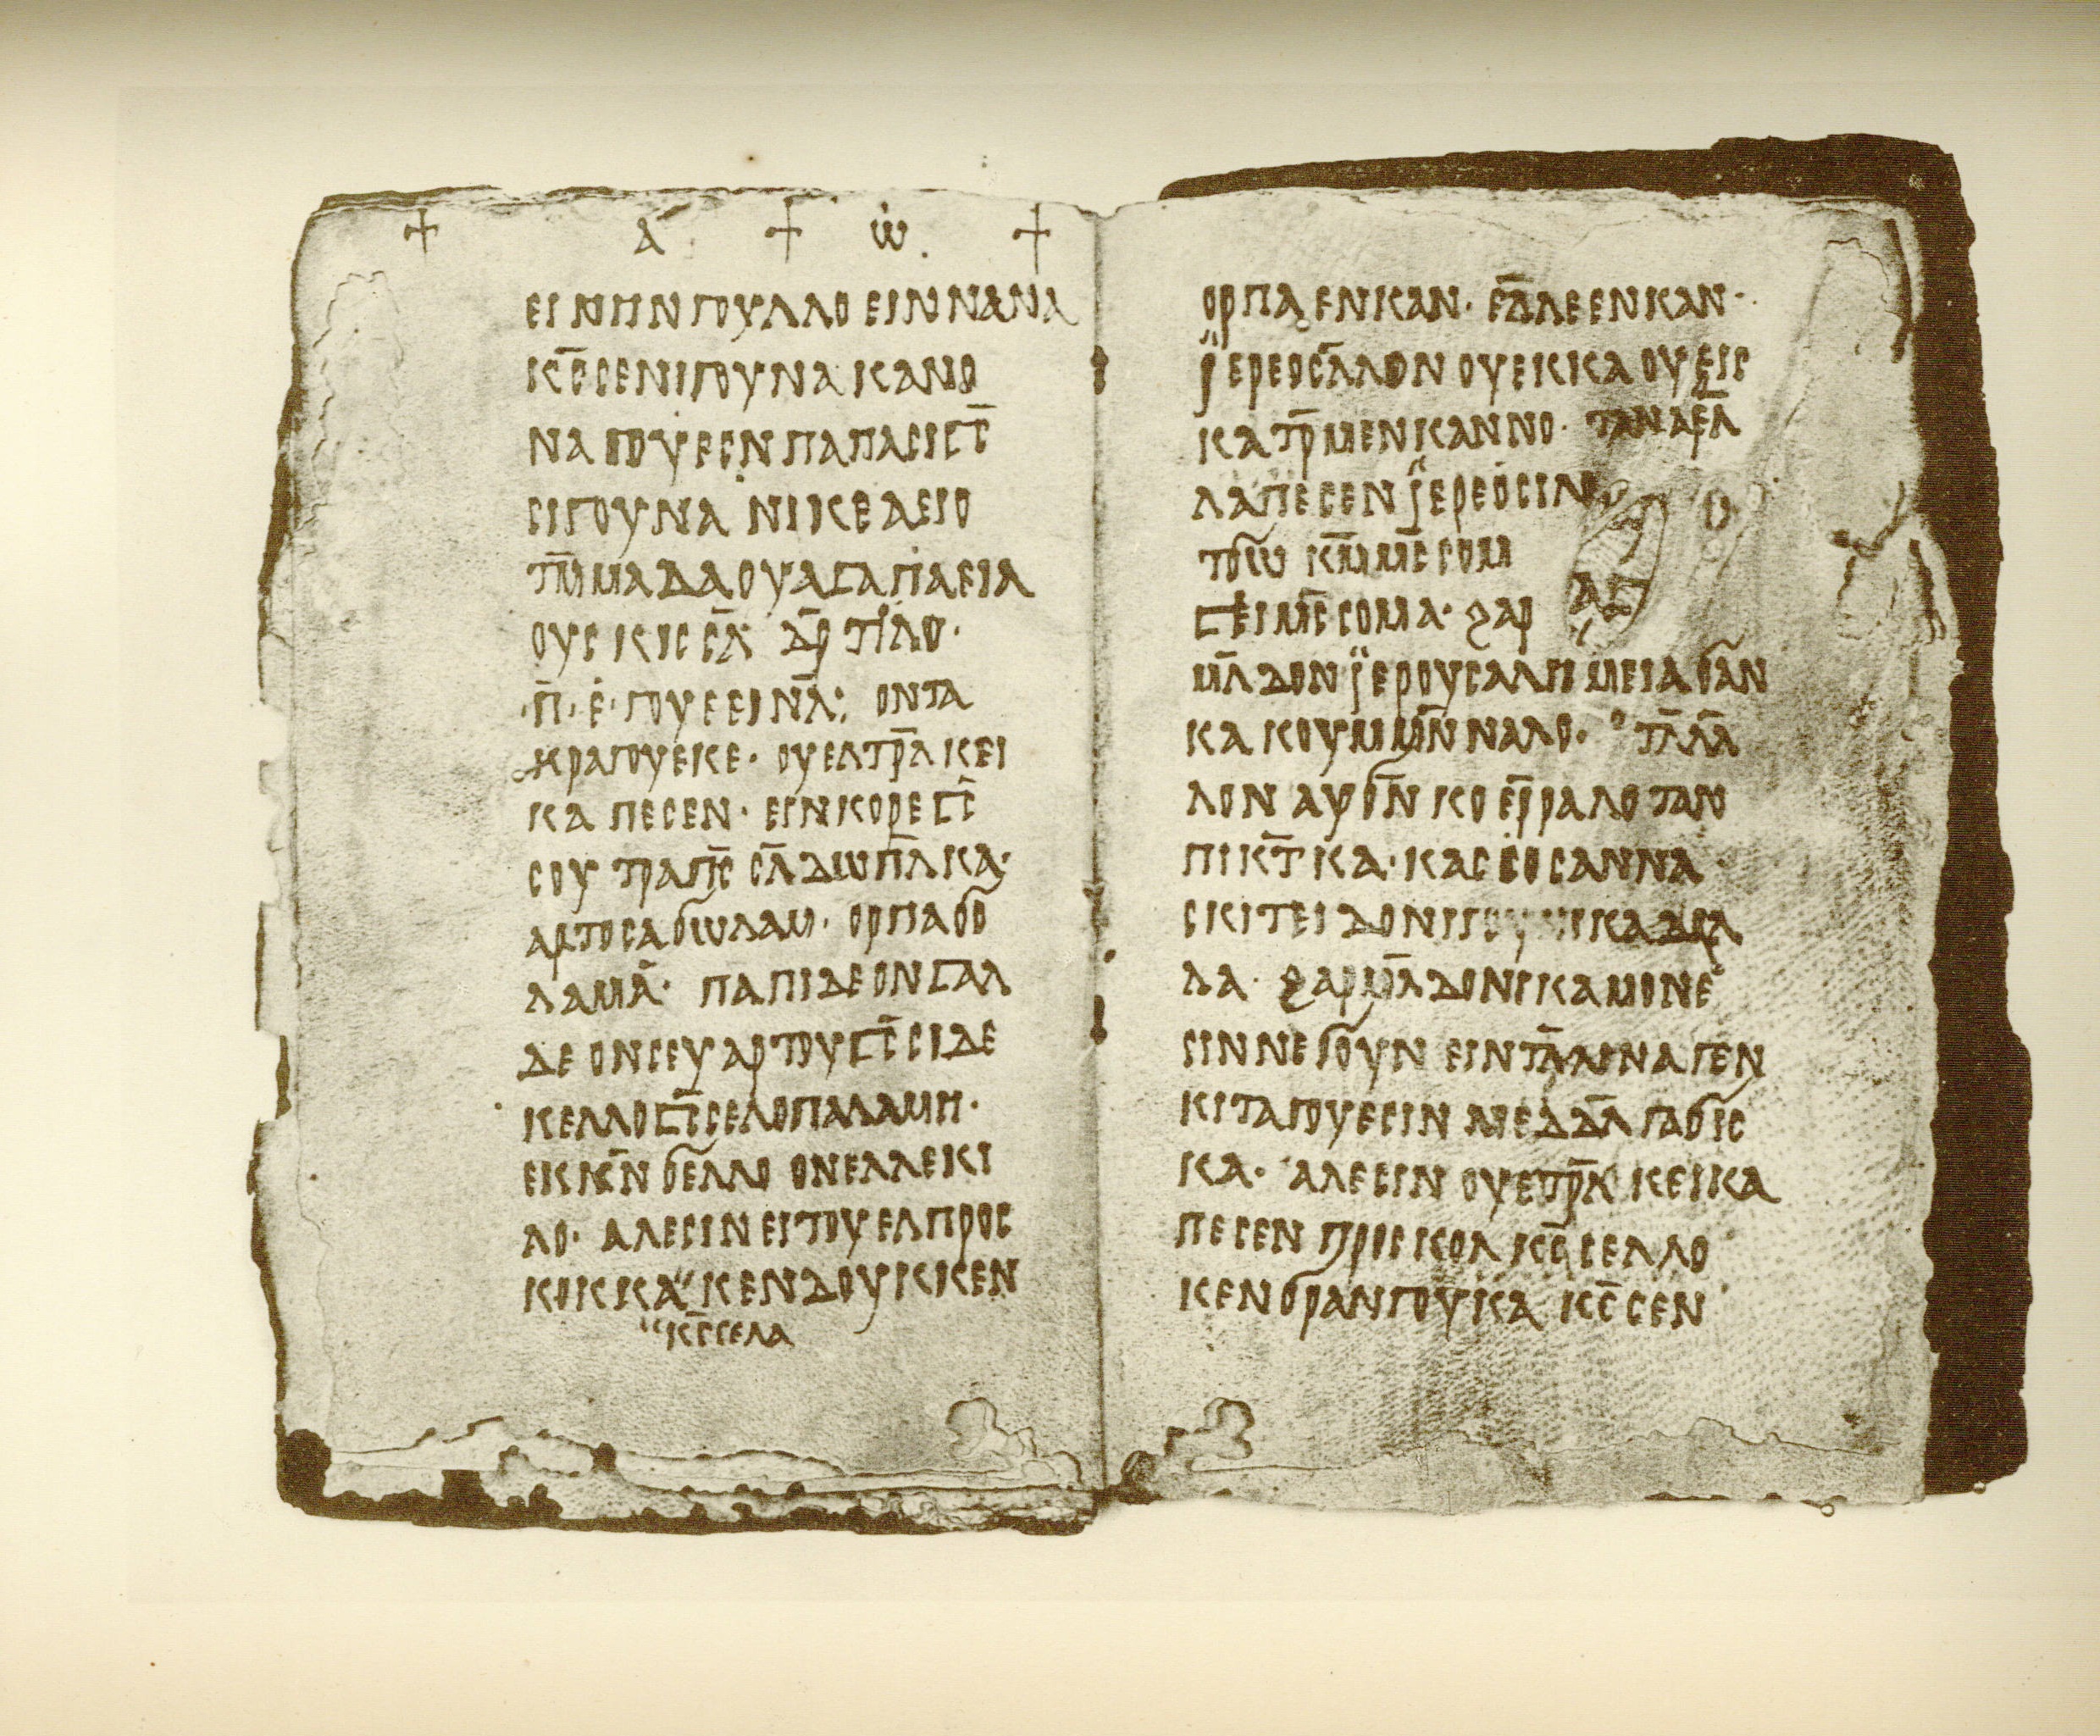 + ⲁ̅ + ⲱ̅ +
ⲉⲓ ⲙ̅ⲡⲛⲅⲟⲩⲗⲗⲟ ⲉⲓⲛⲛⲁⲛⲁ
ⲕ̅ⲥ̅ⲥⲉⲛⲓⲅⲟⲩⲛⲁ ⲕⲁⲛⲟ
ⲛⲁ ⲅⲟⲩⲉⲥⲛ ⲡⲁⲡⲁⲥⲓⳟⲥ̅
ⲥⲓⲅⲟⲩⲛⲁ ⲛⲓⲕⲉⲁⲉⲓⲟ
ⲧⲙ̅ⲙⲁⲇⲁⲟⲩⲁⳟⲁⲡⲁⲉⲓⲁ
ⲟⲩⲥⲕⲓⲥⲥⲗ̅· ⲇⲣ̅ⲧⲓ̈ⲗⲟ·
·ⲡ̅·ⲉ̇·ⲅⲟⲩⲉⲉⲓⲛⲗ̅: ⲟⲛⲧⲁ
ⲕⲣⲁⲅⲟⲩⲉⲕⲉ· ⲟⲩⲉⲗⲧⲣ̅ⲗ ⲕⲉⲓ
ⲕⲁ ⲡⲉⲥⲉⲛ· ⲉⲓⲛ ⲕⲟⲣⲉⳟⲥ̅
ⲥⲟⲩ ⲧⲣⲁⲡⲥ̅ ⲥⲗ̅ⲇⲱⲡⲗ̅ⲕⲁ·
ⲁⲣⲧⲟⲥⲁⳝⲱⲗⲁⲙ· ⲟⲣⲡⲁⳝⲟ
ⲗⲁⲙⲁ̇· ⲡⲁⲡⲓⲇⲉⲟⲛ ⳟⲁⲗ
ⲇⲉ ⲟⲛ ⲥⲉⲩⲁⲣⲧⲟⲩ ⳟⲥ̅ⲥⲓⲇⲉ
ⲕⲉⲗⲗⲟ ⳟⲥ̅ⲥⲉⲗⲟ ⲡⲁⲗⲁⲙⲏ·
ⲉⲓⲕⲕⲛ̅ ⳝⲉⲗⲗⲟ ⲟⲛ ⲉⲗⲗⲉⲕⲓ
ⲗⲟ· ⲁⲗⲉⲥⲓⲛ ⲉⲓⲧⲟⲩⲉⲗ ⲡⲣⲟⲥ
ⲕⲟⲕⲕⲁ〃 ⲕⲉⲛⲇⲟⲩⲕⲕⲉⲛ
〃ⲕ̅ⲥ̅ⲥⲉⲗⲁ
ⲟⲣⲡⲁⲉⲛⲕⲁⲛ· ⲉⲇ̅ⲗⲉⲉⲛⲕⲁⲛ·
ⲓ̈ⲉⲣⲉⲟⲥⲗ̅ⲗⲟⲛ ⲟⲩⲉⲕⲕⲁ ⲟⲩⲉⲓⲥ
ⲕⲁ ⲧⲣ̅ⲙⲉⲛⲕⲁⲛⲛⲟ· ⲧⲁⲛ ⲁⲉ̅ⲗ
ⲗⲁ ⲡⲉⲥⲉⲛ ⲓ̈ⲉⲣⲉⲟⲥⲓⲛ
ⲧⳝⲱ ⲕⲙ̅ⲙⲥ̅ⲥⲟⲙ
ⳟⲉⲓⲙⲥ̅ⲥⲟⲙⲁ· ϩⲁⲣ
ⲙ̅ⲗⲇⲟⲛ ⲓ̈ⲉⲣⲟⲩⲥⲁⲗⲏⲙⲉⲓⲁⳝⲁⲛ
ⲕⲁ ⲕⲟⲩⲙⲙⲛ̅ⲛⲁⲗⲟ· ⲧⲗ̅ⲗⲁ
ⲗⲟⲛ ⲁⲩⳝⲛ̅ ⲕⲟⲉⲣ̅ⲣⲁⲗⲟ ⲧⲁⲛ
ⲡⲓⲕⲧ̅ⲕⲁ· ⲕⲁⲥⲥⲟⲥⲁⲛⲛⲁ
ⲥⲕⲓⲧⲉⲓⲇⲟⲛⲓⲅⲟⲩⲛⲓⲕⲁ
ⲗⲁ· ϩⲁⲣⲙ̅ⲗⲇⲟⲛⲓⲕⲁ ⲙⲟⲛⲉ
ⲥⲓⲛⲛⲉⳝⲟⲩⲛ ⲉⲓⲛ ⲧⲗ̅ⲗⲛⲁ ⲅⲉⲛ
ⲕⲓⲧⲁⲅⲟⲩⲉⲥⲓⲛ ⲙⲉⲇⲇⲗ̅ ⲅⲁⳝⲓⲥ
ⲕⲁ· ⲁⲗⲉⲥⲓⲛ ⲟⲩⲉⲧⲣ̅ⲗ ⲕⲉⲓⲕⲁ
ⲡⲉⲥⲉⲛ ⲡⲣⲟⲥⲕⲟⲗ ⲕ̅ⲥ̅ⲥⲉⲗⲗⲟ
ⲕⲉⲛⳝⲣⲁⲛⲅⲟⲩⲕⲁ ⲕ̅ⲥ̅ⲥⲉⲛ